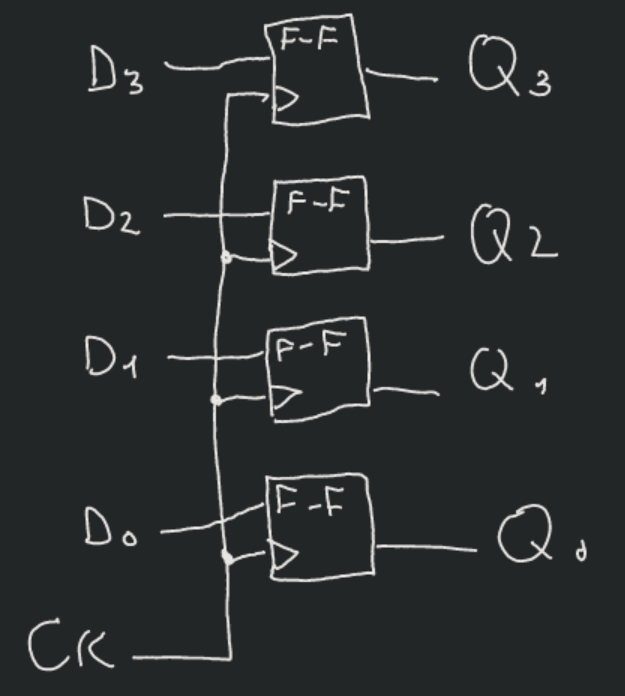 D3 F-F Q3
D2 F-F Q2
D1 F-F Q1
D0 F-F Q0
CK